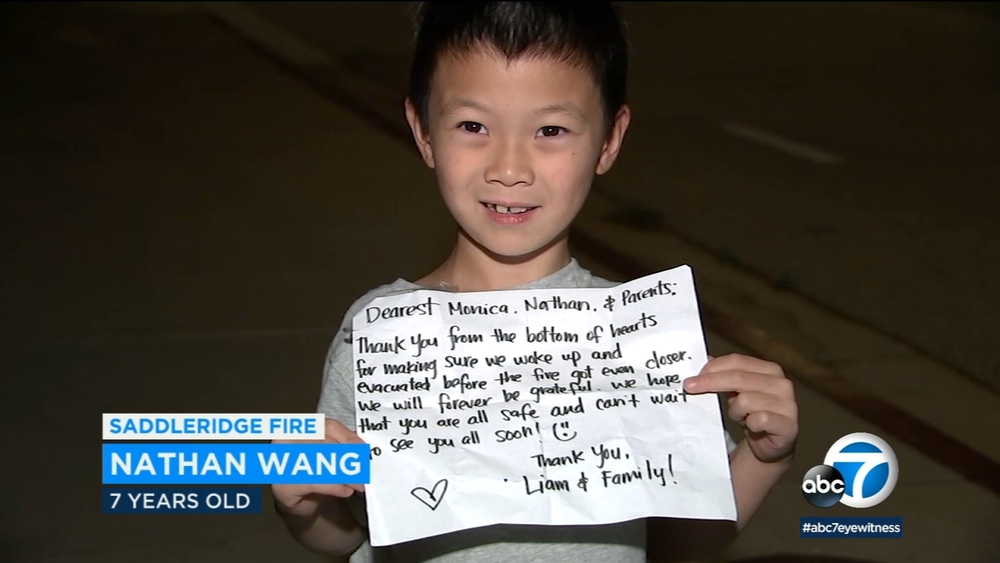 Dearest Monica, Nathan, & Parents:
Thank you from the bottom of hearts
for making sure we woke up and
evacuated before the fire got even closer.
We will forever be grateful. We hope
that you are all safe and can't wait
to see you all soon!
Thank you,
Liam & Family!
SADDLERIDGE FIRE
NATHAN WANG
7 YEARS OLD
abc 7
#abc7eyewitness